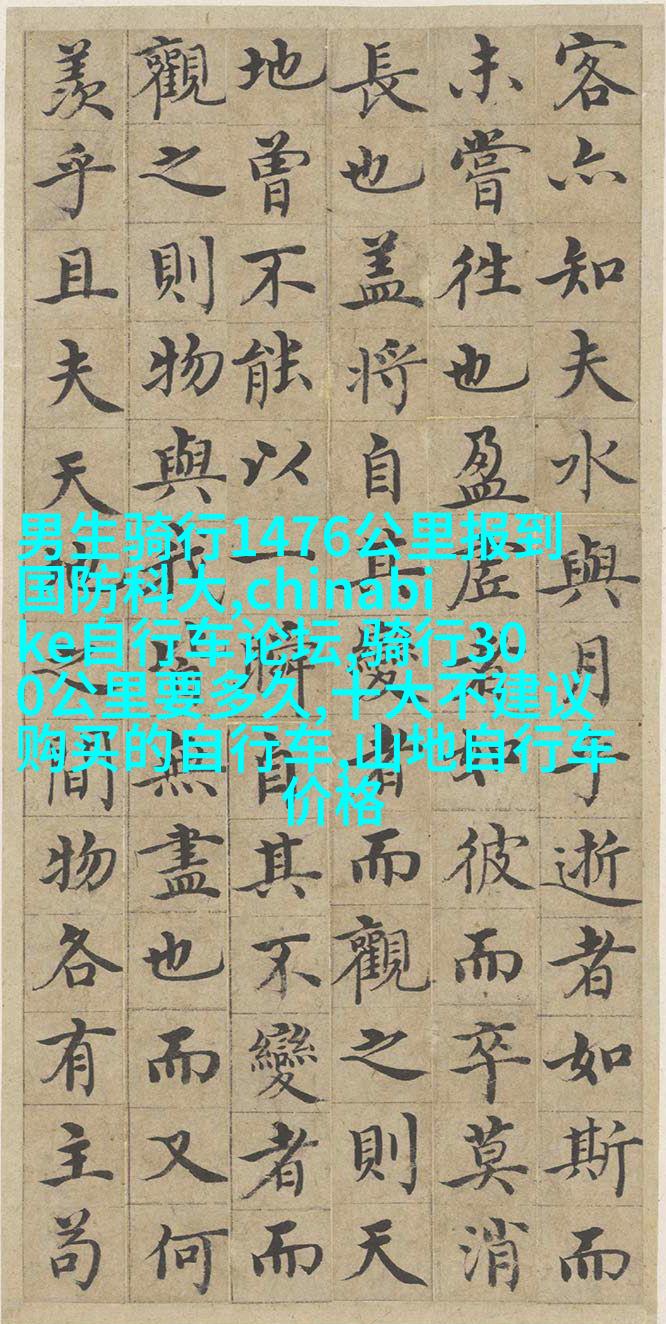 客亦知夫水與月乎逝者如斯而
未嘗往也盈虛者如彼而卒莫消
長也盖將自其變者而觀之則天
地曾不能以一瞬自其不變者而
觀之則物與我皆無盡也而又何
羨乎且夫天地之間物各有主苟
男生骑行1476公里报到
国防科大,chinabi
ke自行车论坛,骑行30
0公里要多久,十大不建议
购买的自行车,山地自行车
价格